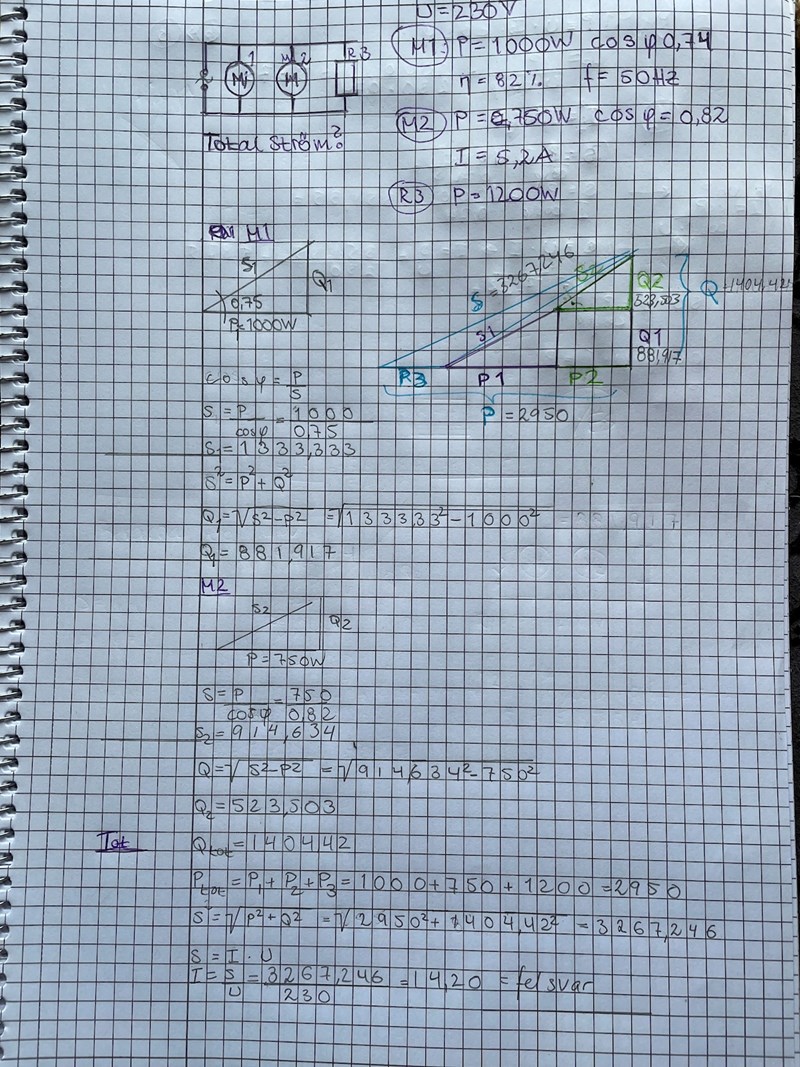 U=230V
M1: P=1000W cos φ 0,74
η=82% f=50Hz
M2 P=0,750W cos φ=0,82
I=5,2A
R3 P=1200W
1
M1
M 2
M
R3
Total ström?
M1
S1
Q1
0,75
P=1000W
S=3267,246
S2
S1
Q2
523,503
Q1
881,917
Q=1404,42
R3 P1 P2
P=2950
cos φ=P/S
S=P/cosφ=1000/0,75
S1=1333,333
S²=P²+Q²
Q1=√S²-P² =√1333,33²-1000²
Q1=881,917
M2
S2
Q2
P=750W
S=P/cosφ=750/0,82
S2=914,634
Q=√S²-P² =√914,634²-750²
Q2=523,503
Tot
Qtot=140442
Ptot=P1+P2+P3=1000+750+1200=2950
S=√P²+Q² =√2950²+1404,42² =3267,246
S=I·U
I=S/U=3267,246/230=14,20 = fel svar